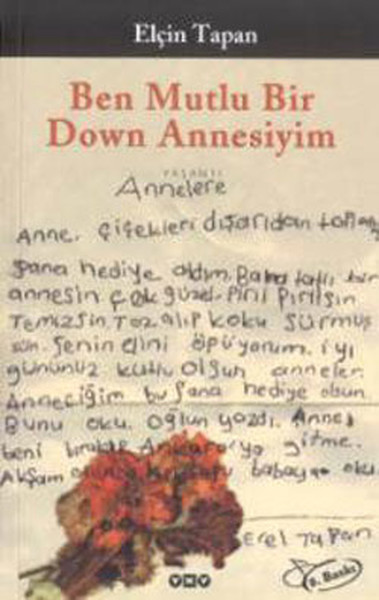 Elçin Tapan
Ben Mutlu Bir
Down Annesiyim
YAŞANTI
Annelere
Anne, çiçekleri dışarıdan
Şana hediye aldım. Bana tatlı bir
annesin çok güzel. Piril Pirilsin
Temizsin. Toz alıp koku Sürmüş
sün. Şenin elini öpüyorum. iyi
gününüz kutlu olsun anneler.
Anneciğim bu Şana hediye olsun.
Bunu oku. oğlun yazdı. Anne
beni bırakıp Ankara'ya gitme.
Akşam babaya oku
Erel Tapan
YKY
8. Baskı